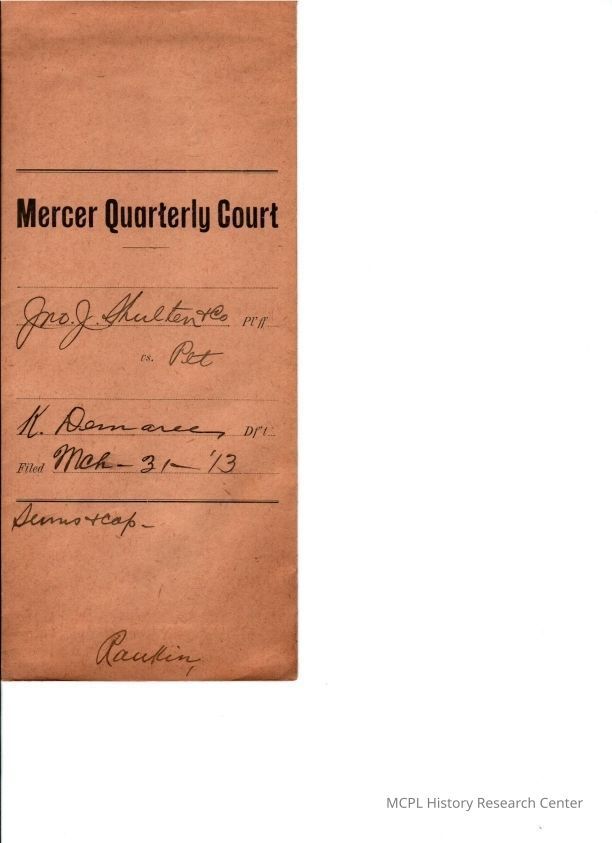 Mercer Quarterly Court
Jno. J. Shulten & Co Pl'ff
vs. Pet
K. Demaree Df't.
Filed Mch - 31 - '13
Sums & cop -
Rankin,
MCPL History Research Center